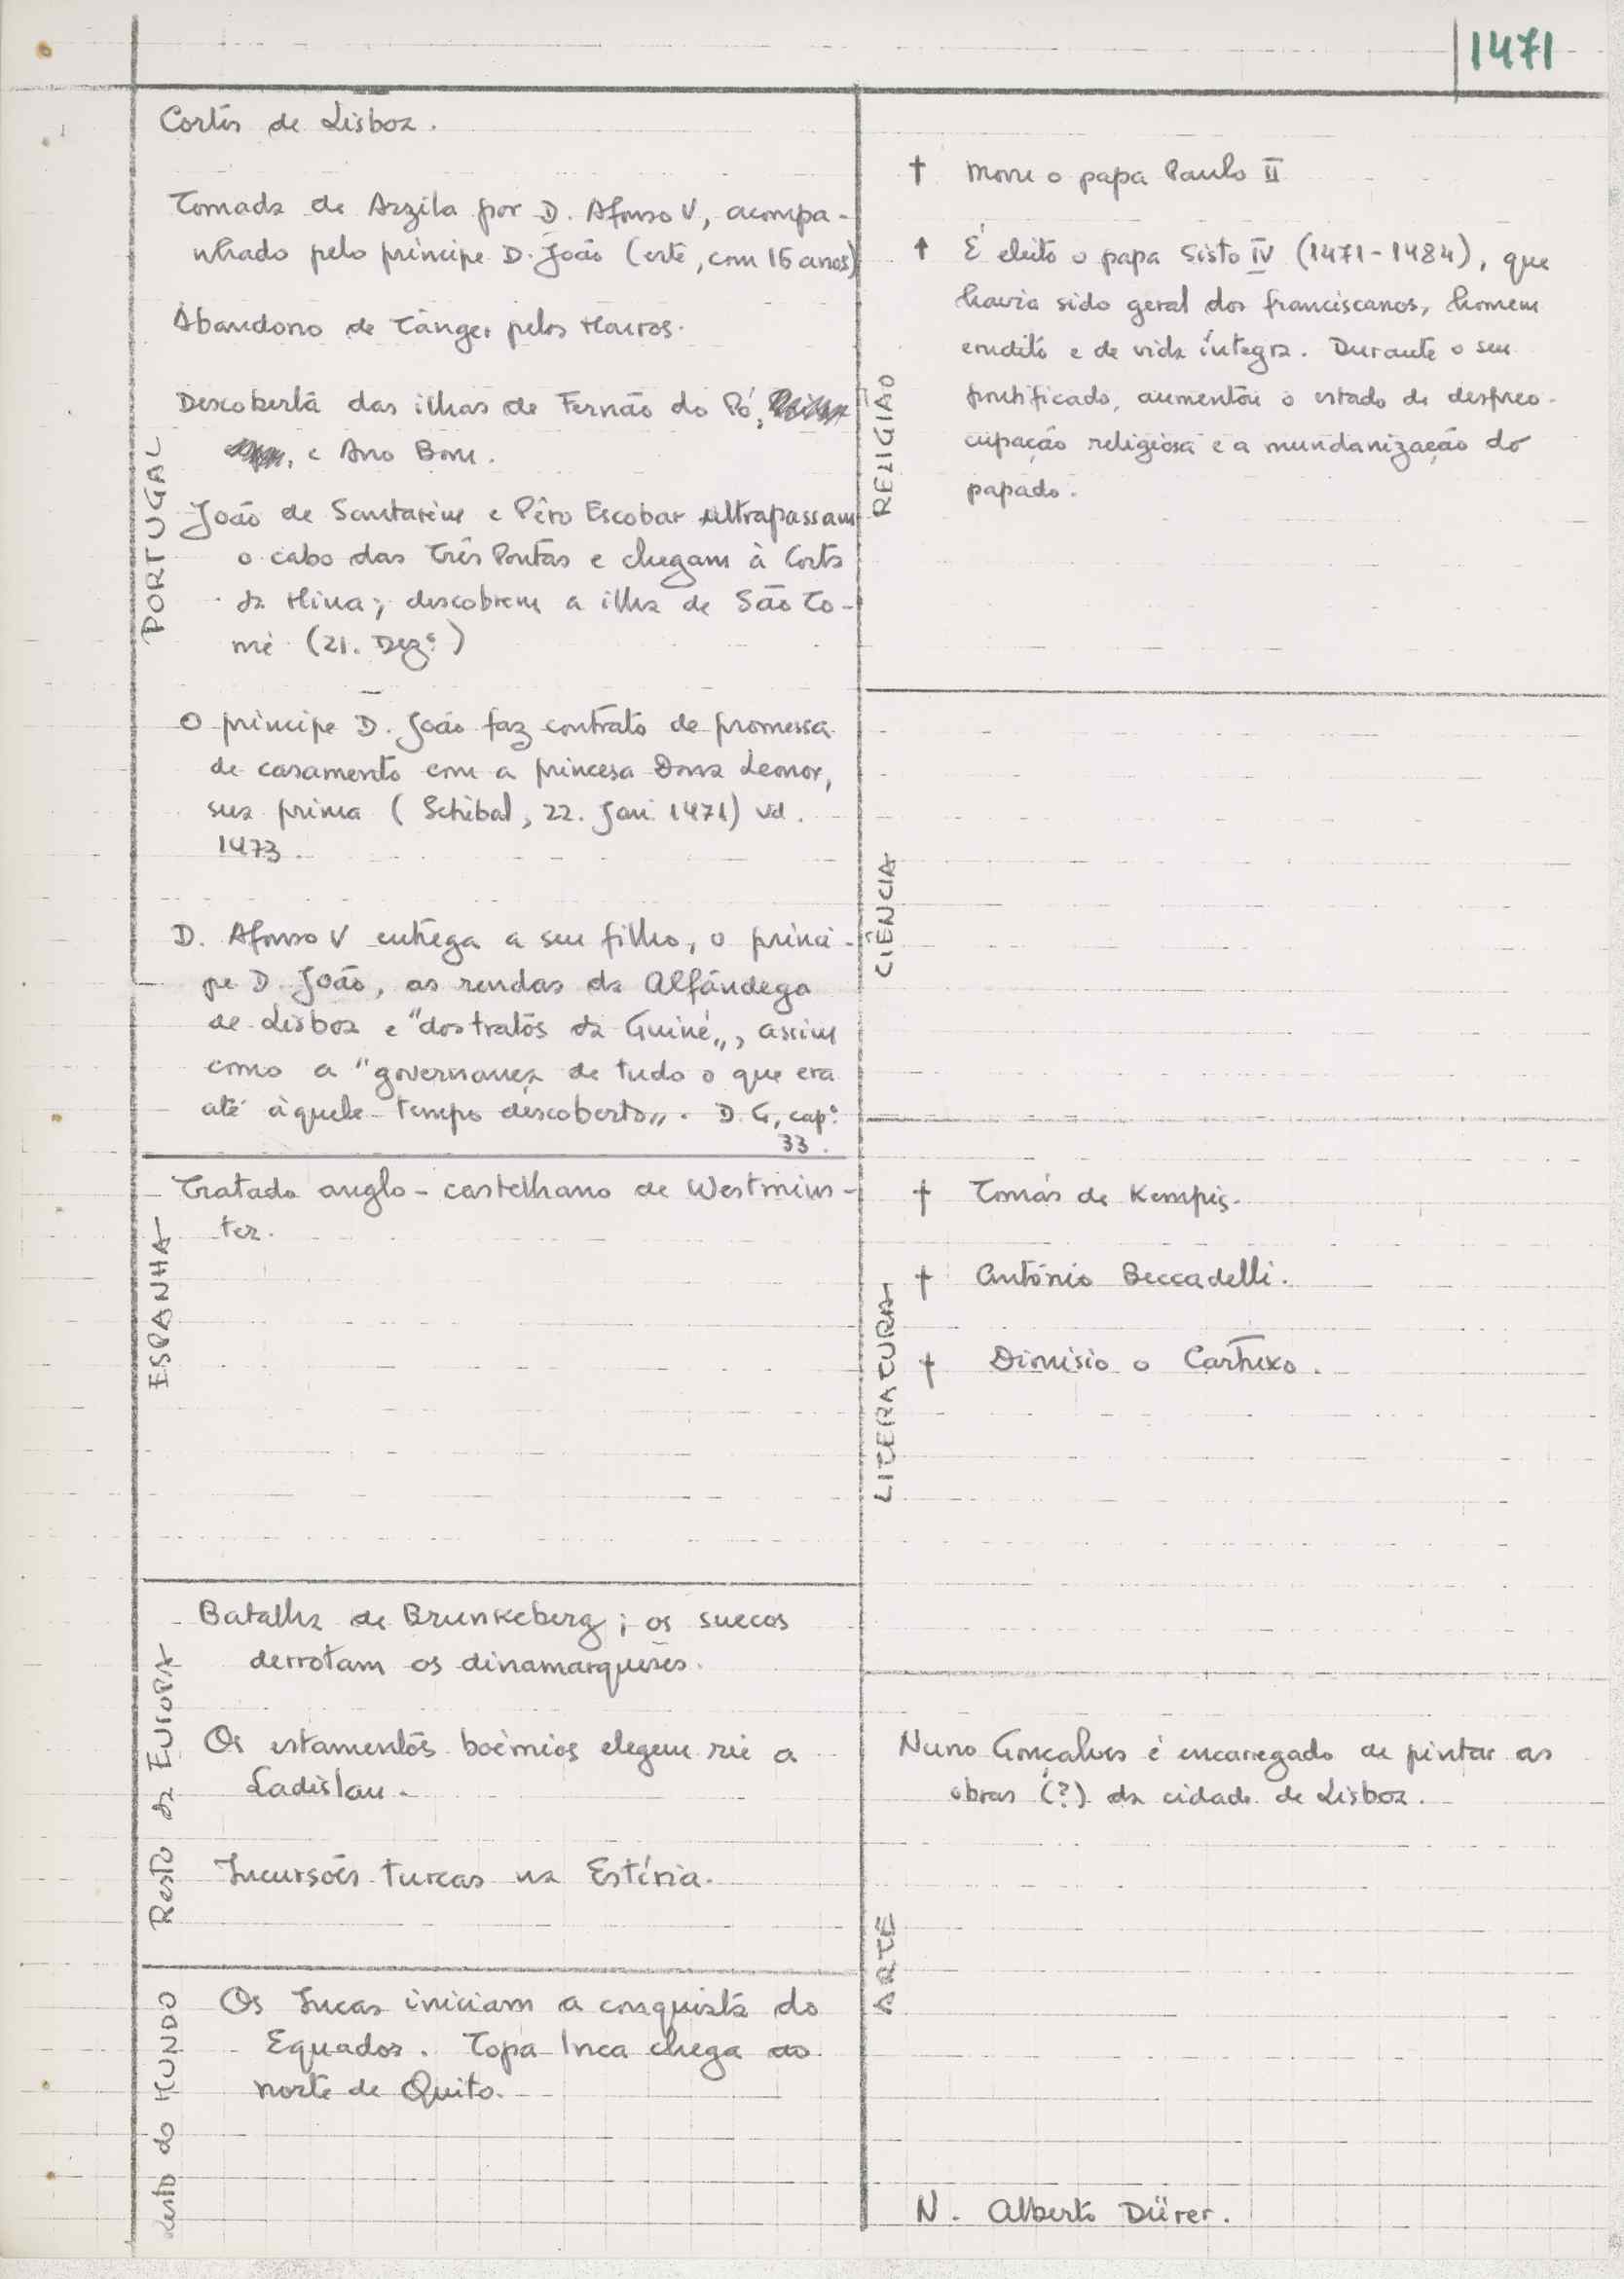 1471
PORTUGAL
Cortes de Lisboa.
Tomada de Arzila por D. Afonso V, acompa-
nhado pelo príncipe D. João (este, com 16 anos)
Abandono de Tânger pelos Mouros.
Descoberta das ilhas de Fernão do Pó,
e Ano Bom.
João de Santarém e Pêro Escobar ultrapassam
o cabo das Três Pontas e chegam à Costa
da Mina; descobrem a ilha de São To-
mé (21. Dezº)
O príncipe D. João faz contrato de promessa
de casamento com a princesa Dona Leonor,
sua prima (Setúbal, 22. Jan. 1471) vd.
1473.
D. Afonso V entrega a seu filho, o prínci-
pe D. João, as rendas da Alfândega
de Lisboa e "dos tratos da Guiné„, assim
como a "governança de tudo o que era
até àquele tempo descoberto„. D. G, cap.º
33.
ESPANHA
Tratado anglo-castelhano de Westmins-
ter.
Resto da EUROPA
Batalha de Brunkeberg; os suecos
derrotam os dinamarqueses.
Os estamentos boémios elegem rei a
Ladislau.
Incursões turcas na Estíria.
Resto do MUNDO
Os Incas iniciam a conquista do
Equador. Topa Inca chega ao
norte de Quito.
RELIGIÃO
† Morre o papa Paulo II
† É eleito o papa Sisto IV (1471-1484), que
havia sido geral dos franciscanos, homem
erudito e de vida íntegra. Durante o seu
pontificado, aumentou o estado de despreo-
cupação religiosa e a mundanização do
papado.
CIÊNCIA
LITERATURA
† Tomás de Kempis.
† António Beccadelli.
† Dionísio o Cartuxo.
ARTE
Nuno Gonçalves é encarregado de pintar as
obras (?) da cidade de Lisboa.
N. Alberto Dürer.